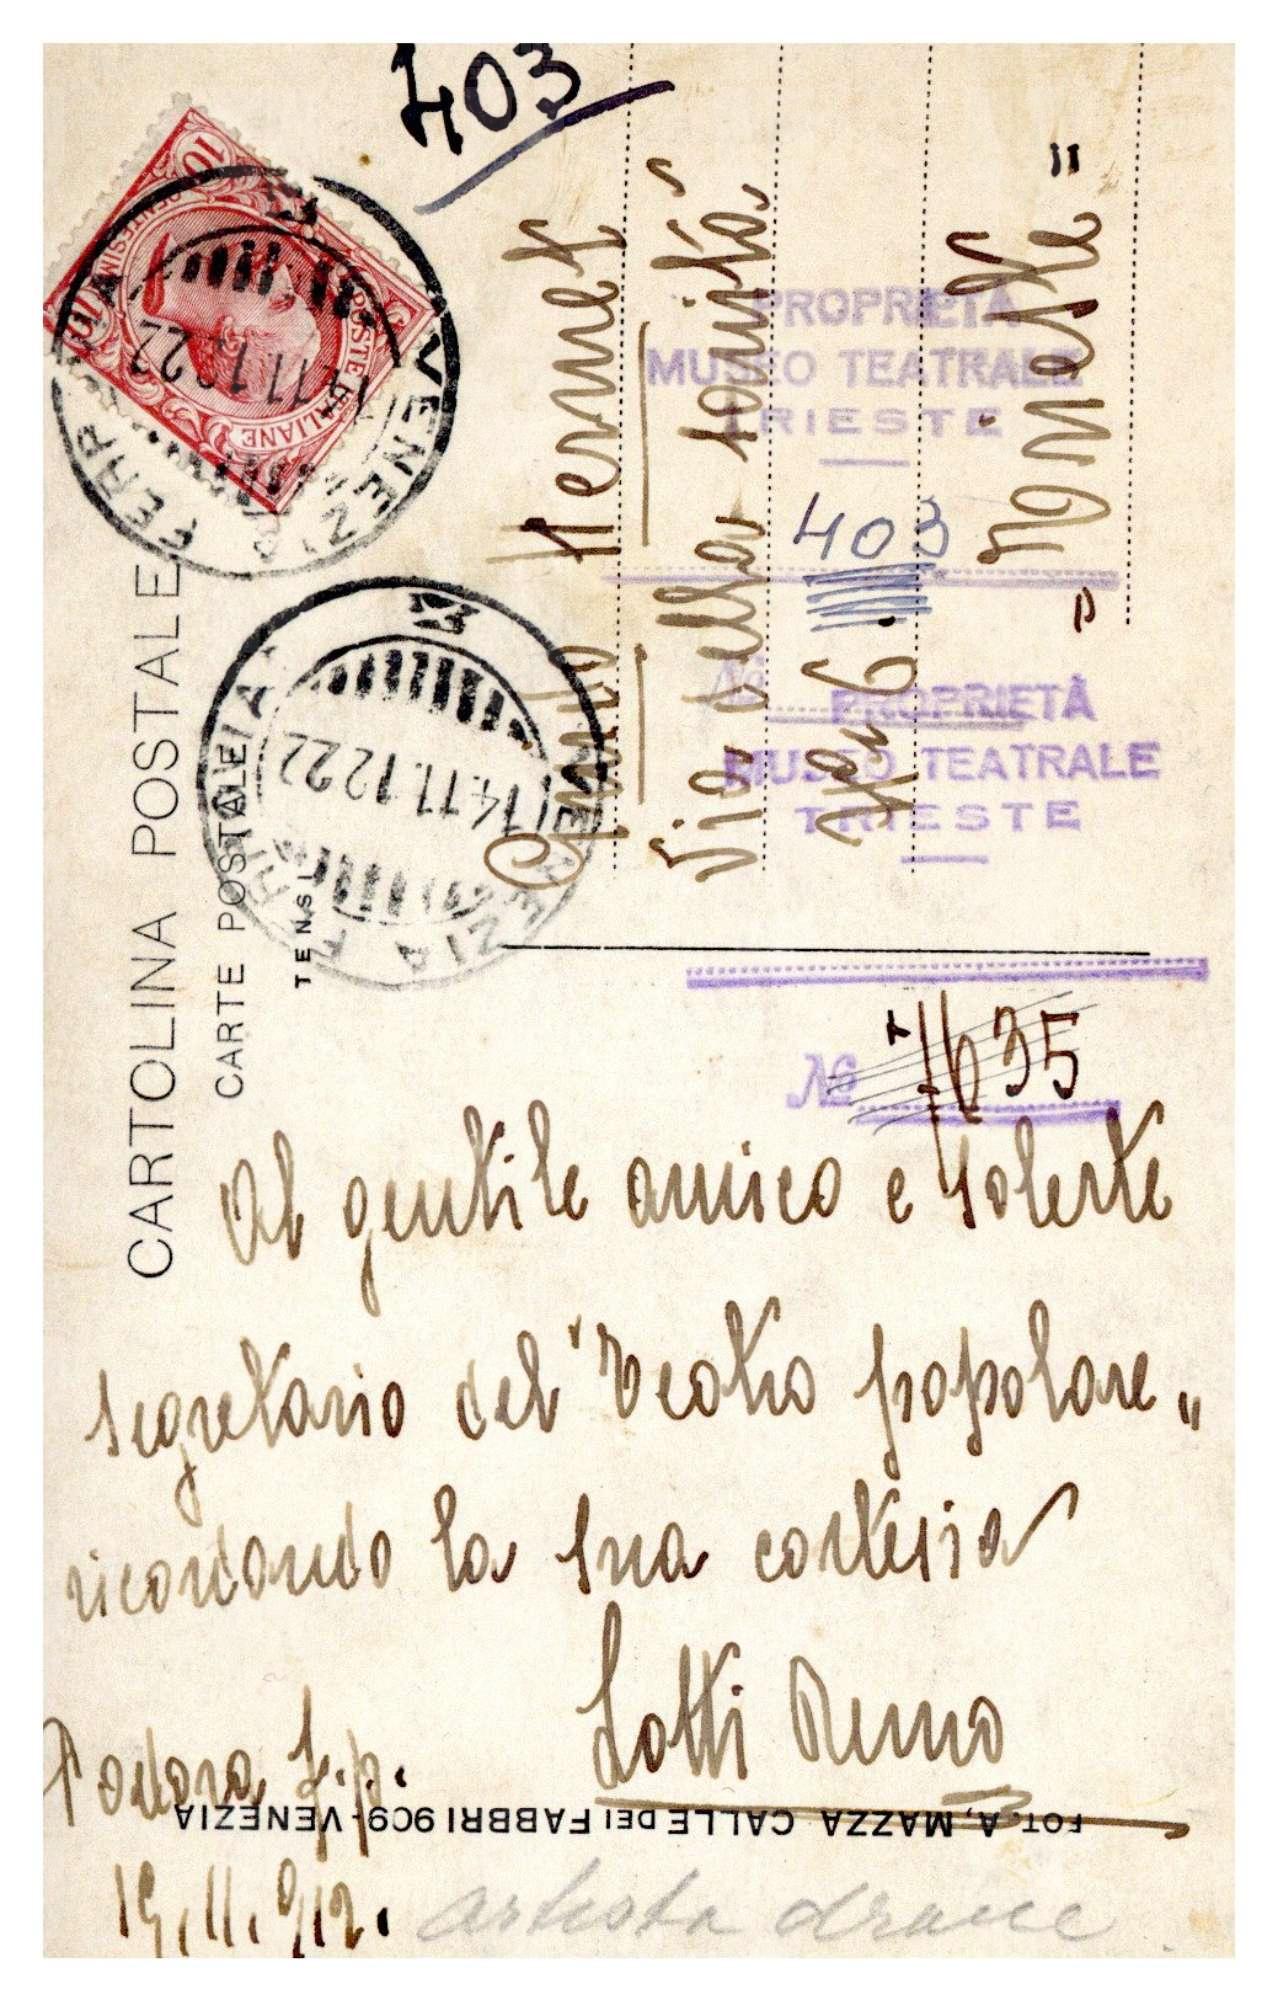 403
CARTOLINA POSTALE
CARTE POSTALE
POSTE ITALIANE
CENTESIMI
10
10
VENEZIA
FERROVIA
14.11.12 22
VENEZIA
FERROVIA
14.11.12 22
Guido Hermet
Via della Sanità
No 6.
"Trieste"
PROPRIETÀ
MUSEO TEATRALE
TRIESTE
403
No
PROPRIETÀ
MUSEO TEATRALE
TRIESTE
No 1635
Al gentile amico e solerte
segretario del "Teatro popolare"
ricordando la sua cortesia
Lotti Remo
Padova f.p.
FOT. A. MAZZA CALLE DEI FABBRI 909 - VENEZIA
.11.912.
artista dramc